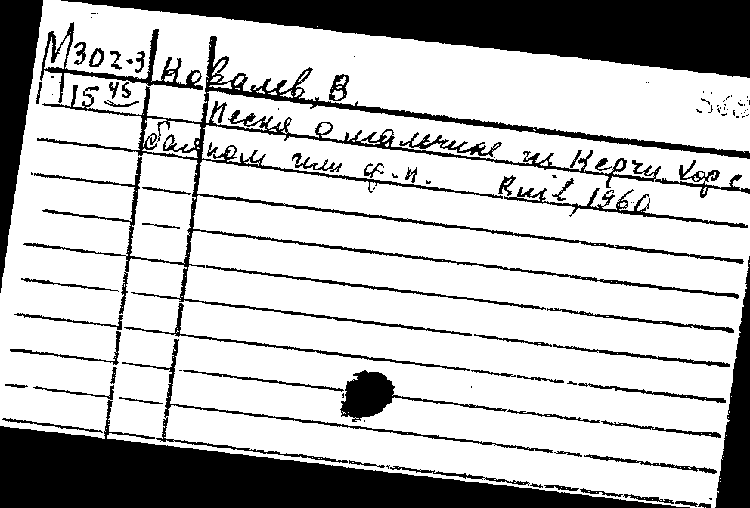 М302-3 Ковалев, В.
115 45
Песня о мальчике из Керчи. Хор с
баяном или ф.-п. Киiв, 1960